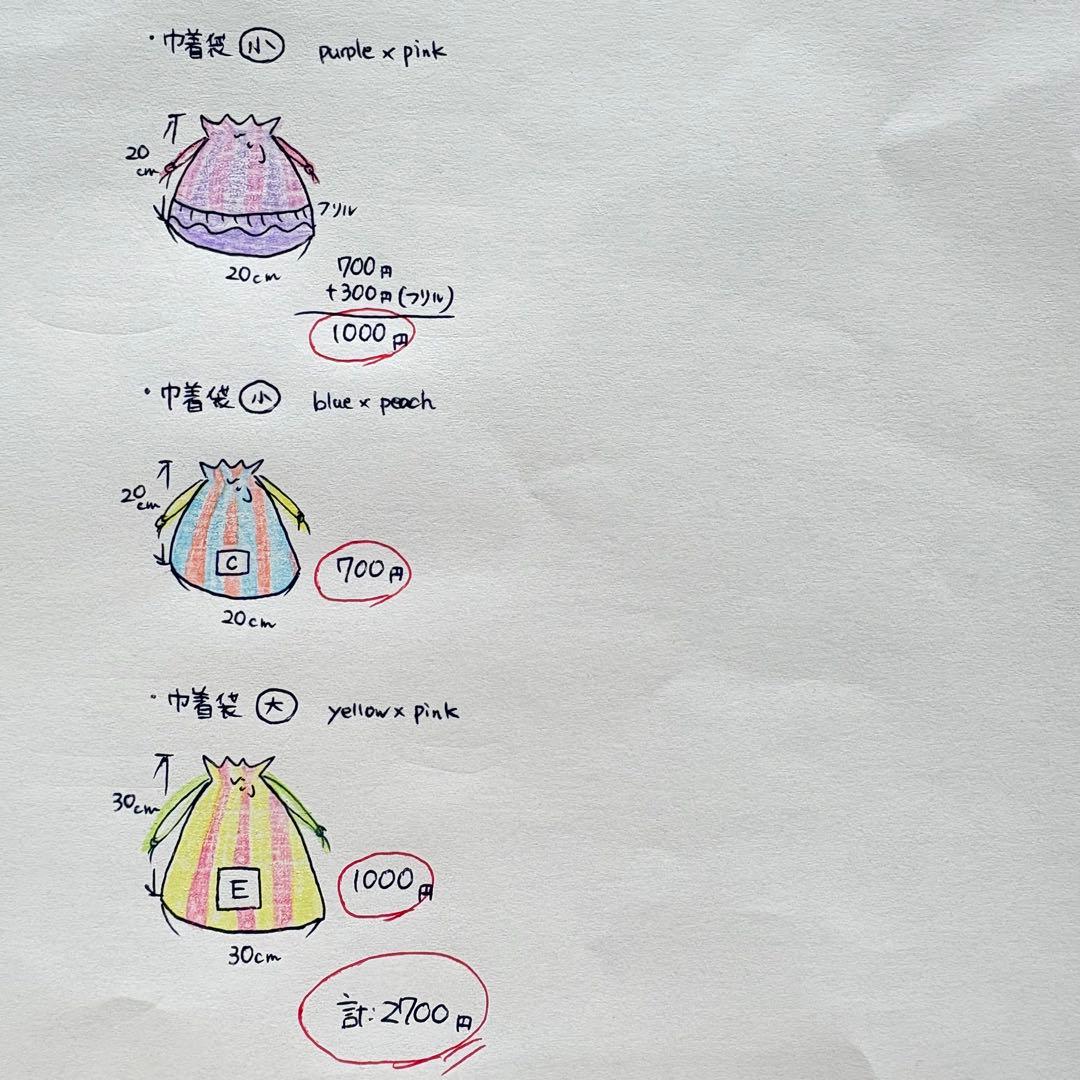 ・巾着袋 小 purple x pink
20
cm
フリル
20cm
700円
+300円(フリル)
1000円
・巾着袋 小 blue x peach
20
cm
C
700円
20cm
・巾着袋 大 yellow x pink
30cm
E
1000円
30cm
計:2700円